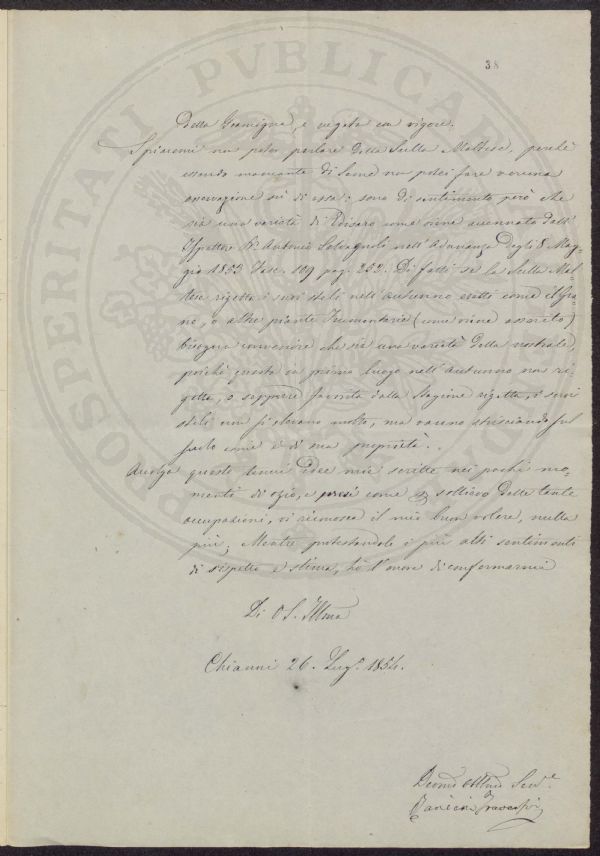 38
PROSPERITATI PVBLICAE
della Gramigna, e vegeta con vigore.
Spiacemi non poter parlare della Sulla Maltese, perché
essendo mancante di Seme non potei fare veruna
osservazione su di essa: sono di sentimento però che
sia una varietà di Edisaro come viene accennato dall'
Ispettore Sr. Antonio Salvagnoli nell'Adunanza degli 8 Mag-
gio 1853 Fasc. 109 pag. 252. Di fatti se la Sulla Mal-
tese rigetta i suoi steli nell'autunno eretti come il gra-
no, o altre piante frumentarie (come viene asserito)
bisogna convenire che sia una varietà della nostrale,
poiché questa in primo luogo nell'Autunno non ri-
getta, o seppure favorita dalla Stagione rigetta, i suoi
steli non si elevano molto, ma vanno strisciando sul
suolo come è di sua proprietà..
Accolga queste tenui idee mie scritte nei pochi mo-
menti di ozio, e presi come sollievo delle tante
occupazioni, vi riconosca il mio buon volere, nulla
più, Mentre protestandole i più alti sentimenti
di rispetto e stima, ho l'onore di confermarmi
Di V S. Illma
Chianni 26. Lugo. 1854.
Devmo Obbmo Serve